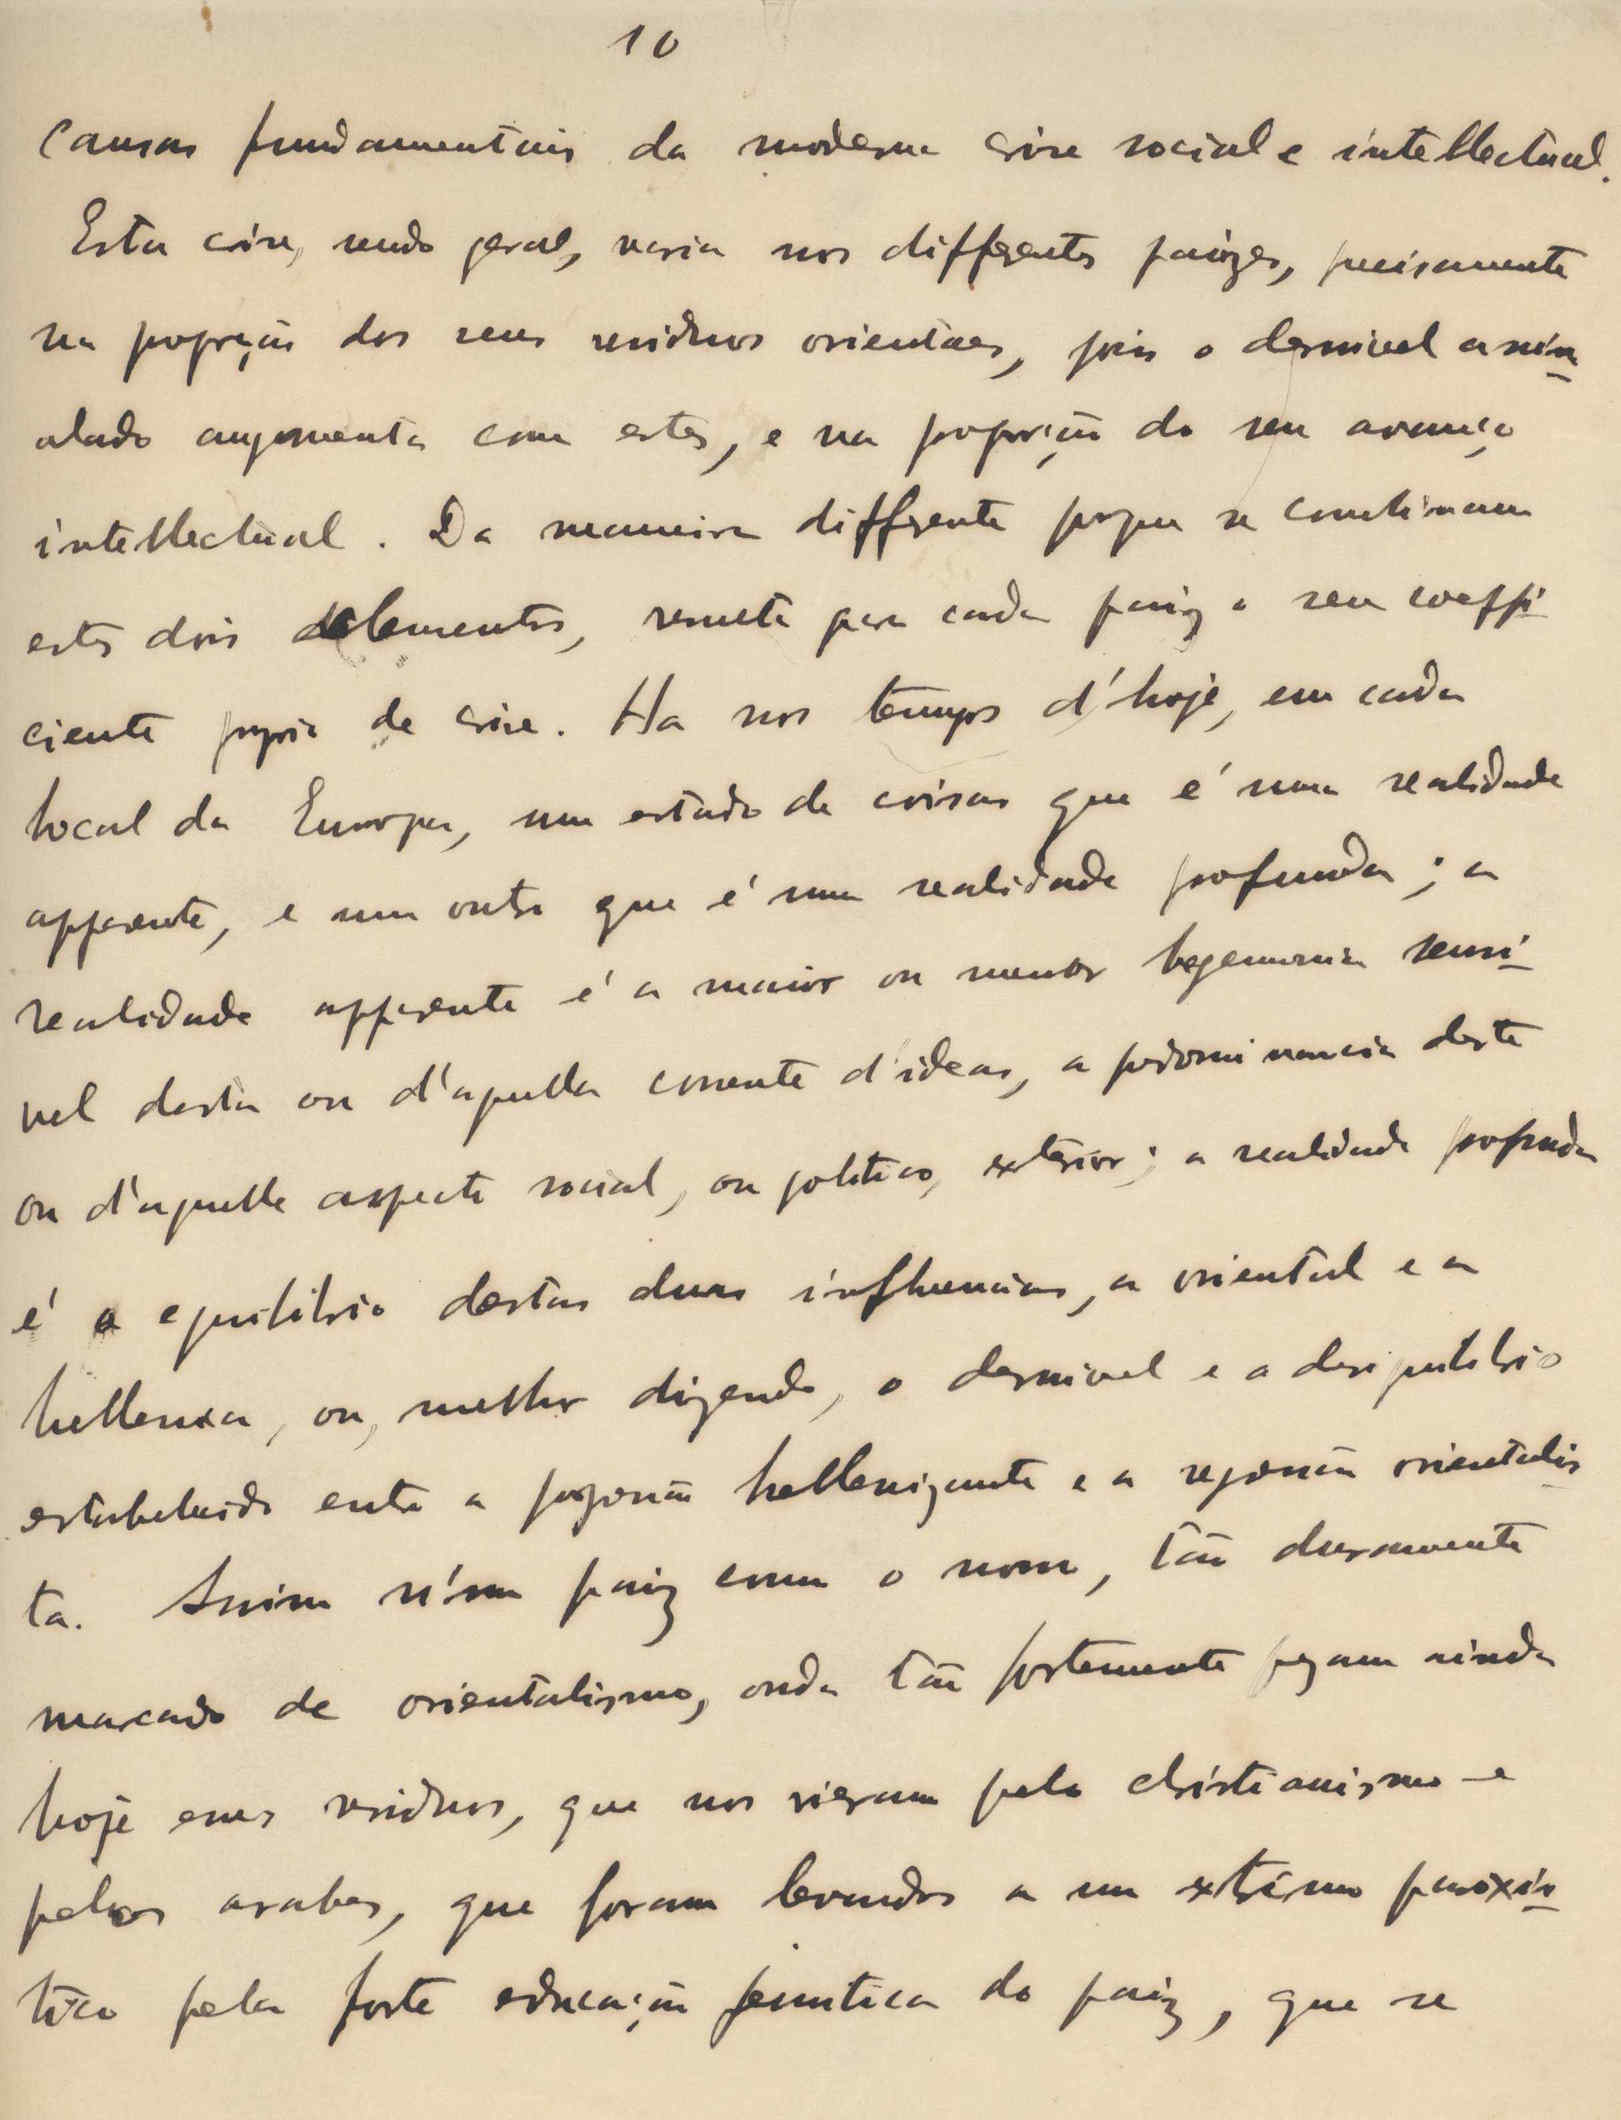 10
causas fundamentaes da moderna crise social e intellectual.
Esta crise, sendo geral, varia nos differentes paizes, precisamente
na proporção dos seus residuos orientaes, pois o desnivel assign-
alado augmenta com estes, e na proporção do seu avanço
intellectual. Da maneira differente porque se combinam
estes dois elementos, resulta para cada paiz o seu coeffi-
ciente proprio de crise. Ha nos tempos d'hoje, em cada
local da Europa, um estado de coisas que é uma realidade
apparente, e um outro que é uma realidade profunda; a
realidade apparente é a maior ou menor hegemonia sensi-
vel desta ou d'aquella corrente d'ideas, a predominancia deste
ou d'aquelle aspecto social, ou politico, exterior; a realidade profunda
é o equilibrio destas duas influencias, a oriental e a
hellenica, ou, melhor dizendo, o desnivel e o desequilibrio
estabelecido entre a progressão hellenizante e a regressão orientalis-
ta. Assim n'um paiz como o nosso, tão duramente
marcado de orientalismo, onde tão fortemente pegam ainda
hoje esses residuos, que nos vieram pelo christianismo e
pelos arabes, que foram levados a um extremo paroxis-
tico pela forte educação jesuitica do paiz, que se